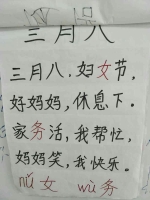 三月八
三月八,妇女节,
好妈妈,休息下。
家务活,我帮忙,
妈妈笑,我快乐。
nǚ 女 wù 务